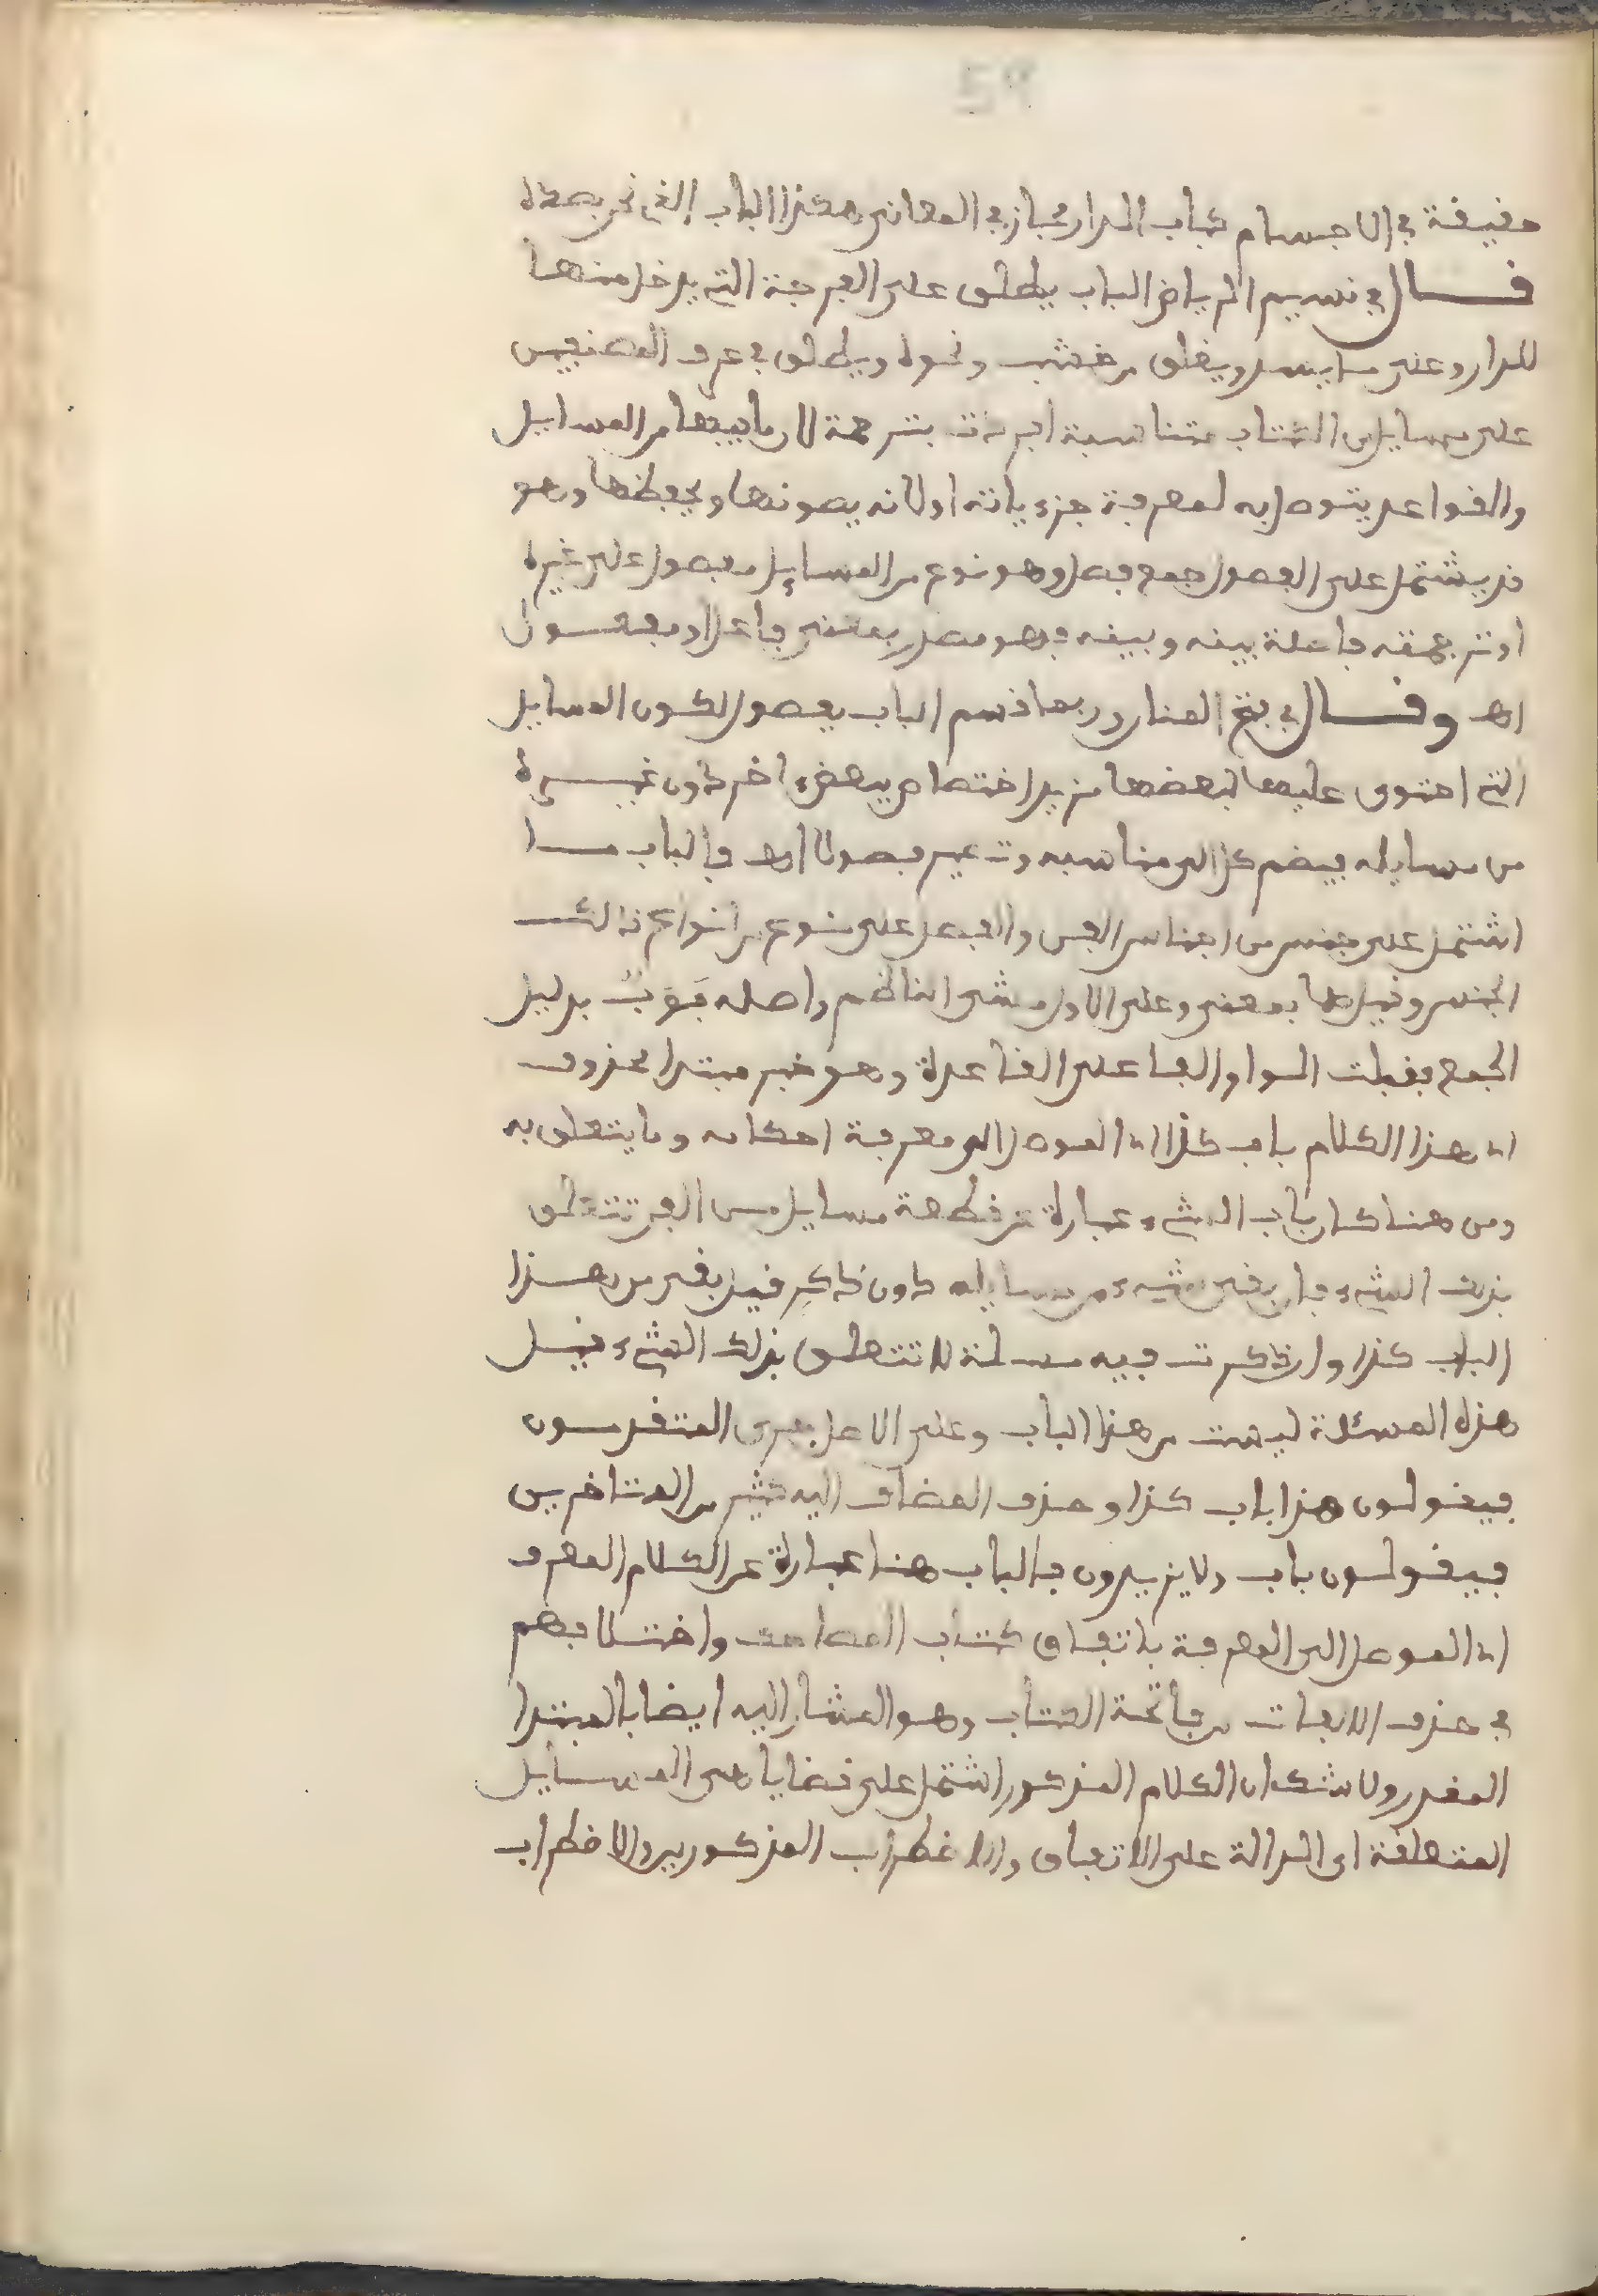 حقيقة في الاجسام كباب الدار مجاز في المعاني كهذا الباب الذي نحن بصدده
قال في نسيم الرياض الباب يطلق على الفرجة التي يدخل منها
للدار وعلى ما يسد ويغلق من خشب ونحوه ويطلق في عرف المصنفين
على مسايل من الكتاب متناسبة افردت بترجمة لان ما بينها من المسايل
والقواعد يتوصل به لمعرفة جزءياته او لانه يصونها ويحفظها وهو
قد يشتمل على الفصول جمع فصل وهو نوع من المسايل مفصول على غيره
او ترجمته فاصلة بينه وبينه فهو مصدر بمعنى فاعل او مفعول
اهـ وقال في فتح المنان وربما قسم الباب بفصول لكون المسايل
التي احتوى عليها لبعضها مزيد اختصاص ببعضء اخر دون غيره
من مسايله فيضم كل الى مناسبه وتصير فصولا اهـ فالباب ما
اشتمل على جنس من اجناس الفن والفصل على نوع من انواع ذالك
الجنس وقيل هما بمعنى وعلى الاول مشى الناظم واصله بَوَبٌ بدليل
الجمع فقلبت الواو الفا على القاعدة وهو خبر مبتدا محذوف
اى هذا الكلام باب كذا اى الموصل الى معرفة احكامه وما يتعلق به
ومن هنا كان باب الشيء عبارة عن قطعة مسايل من الفن تتعلق
بذلك الشيء فان بقى شيء من مسايله دون ذكر قيل بقى من هذا
الباب كذا وان ذكرت فيه مسلة لا تتعلق بذلك الشيء قيل
هذه المسئلة ليست من هذا الباب وعلى الاصل جرى المتقدمون
فيقولون هذا باب كذا وحذف المضاف اليه كثير من المتاخرين
فيقولون باب ولا يزيدون فالباب هنا عبارة عن الكلام المعرف
اى الموصل الى المعرفة باتفاق كتاب المصاحف واختلافهم
في حذف الالفات من فاتحة الكتاب وهو المشار اليه ايضا بالمبتدا
المقدر ولا شك ان الكلام المذكور اشتمل على قضايا هى المسايل
المتعلقة اى الدالة على الاتفاق والاضطراب المذكورين والاضطراب